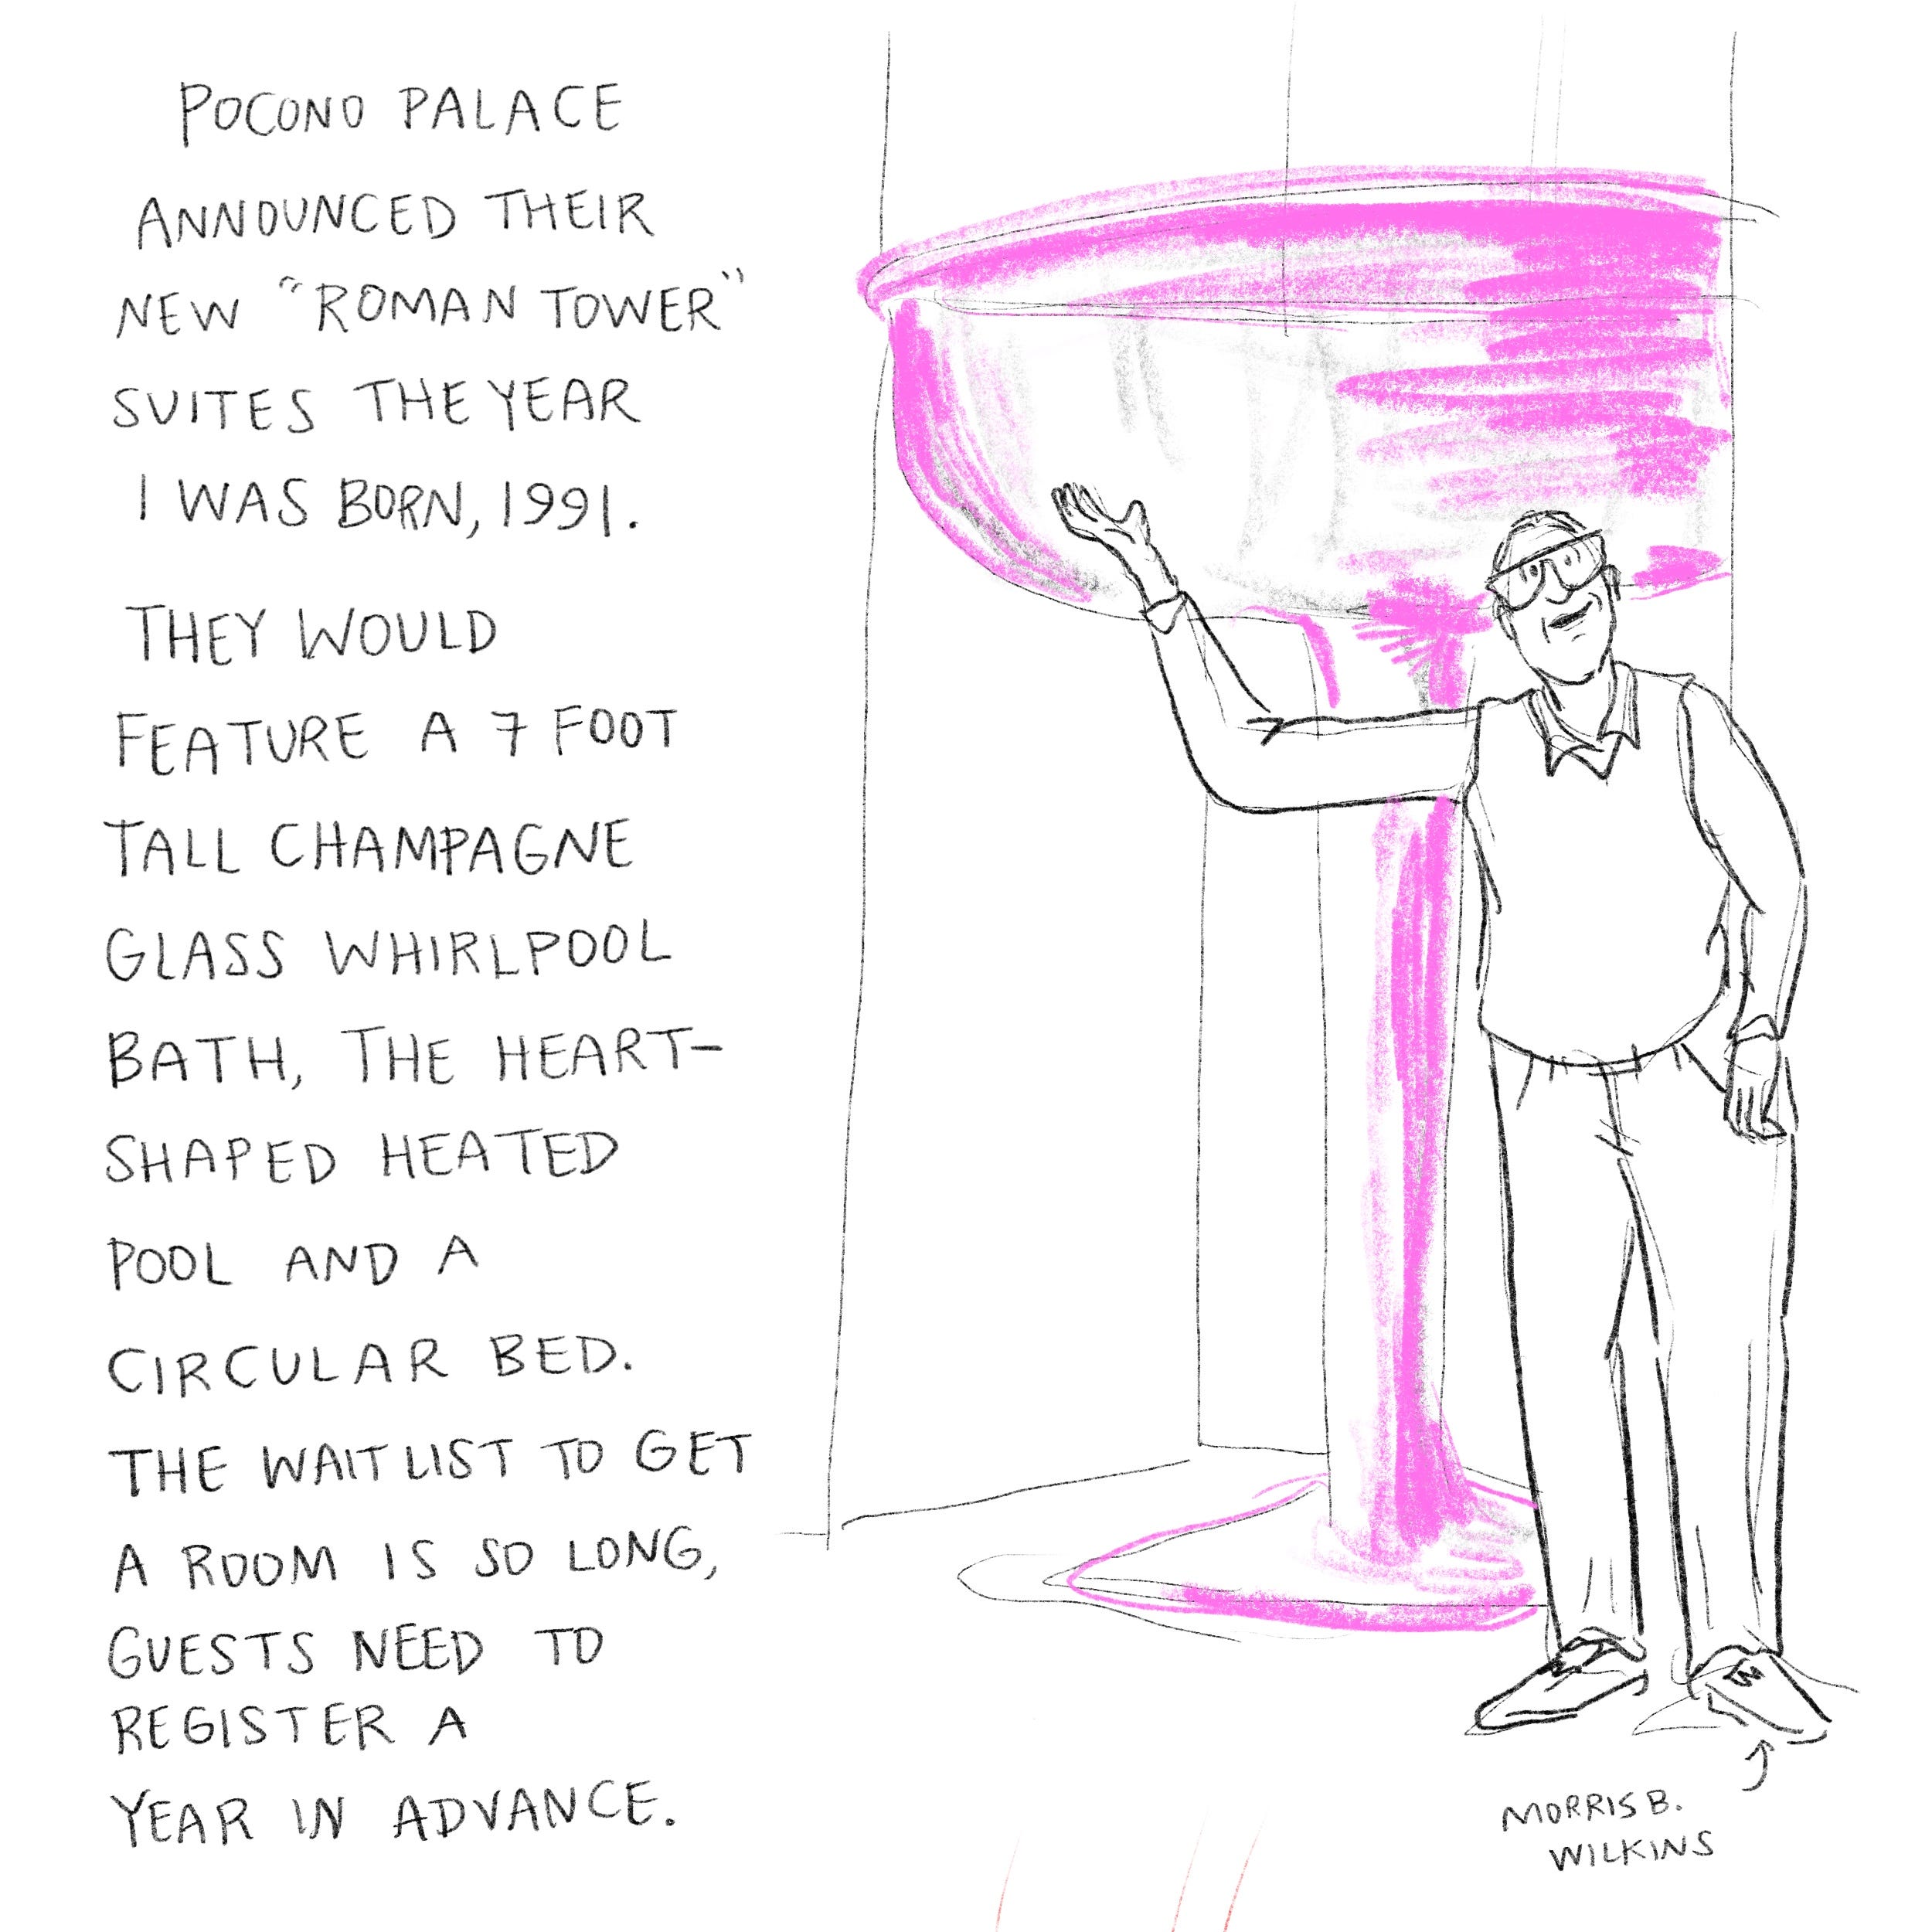 POCONO PALACE
ANNOUNCED THEIR
NEW "ROMAN TOWER"
SUITES THE YEAR
I WAS BORN, 1991.
THEY WOULD
FEATURE A 7 FOOT
TALL CHAMPAGNE
GLASS WHIRLPOOL
BATH, THE HEART-
SHAPED HEATED
POOL AND A
CIRCULAR BED.
THE WAITLIST TO GET
A ROOM IS SO LONG,
GUESTS NEED TO
REGISTER A
YEAR IN ADVANCE.
MORRIS B.
WILKINS